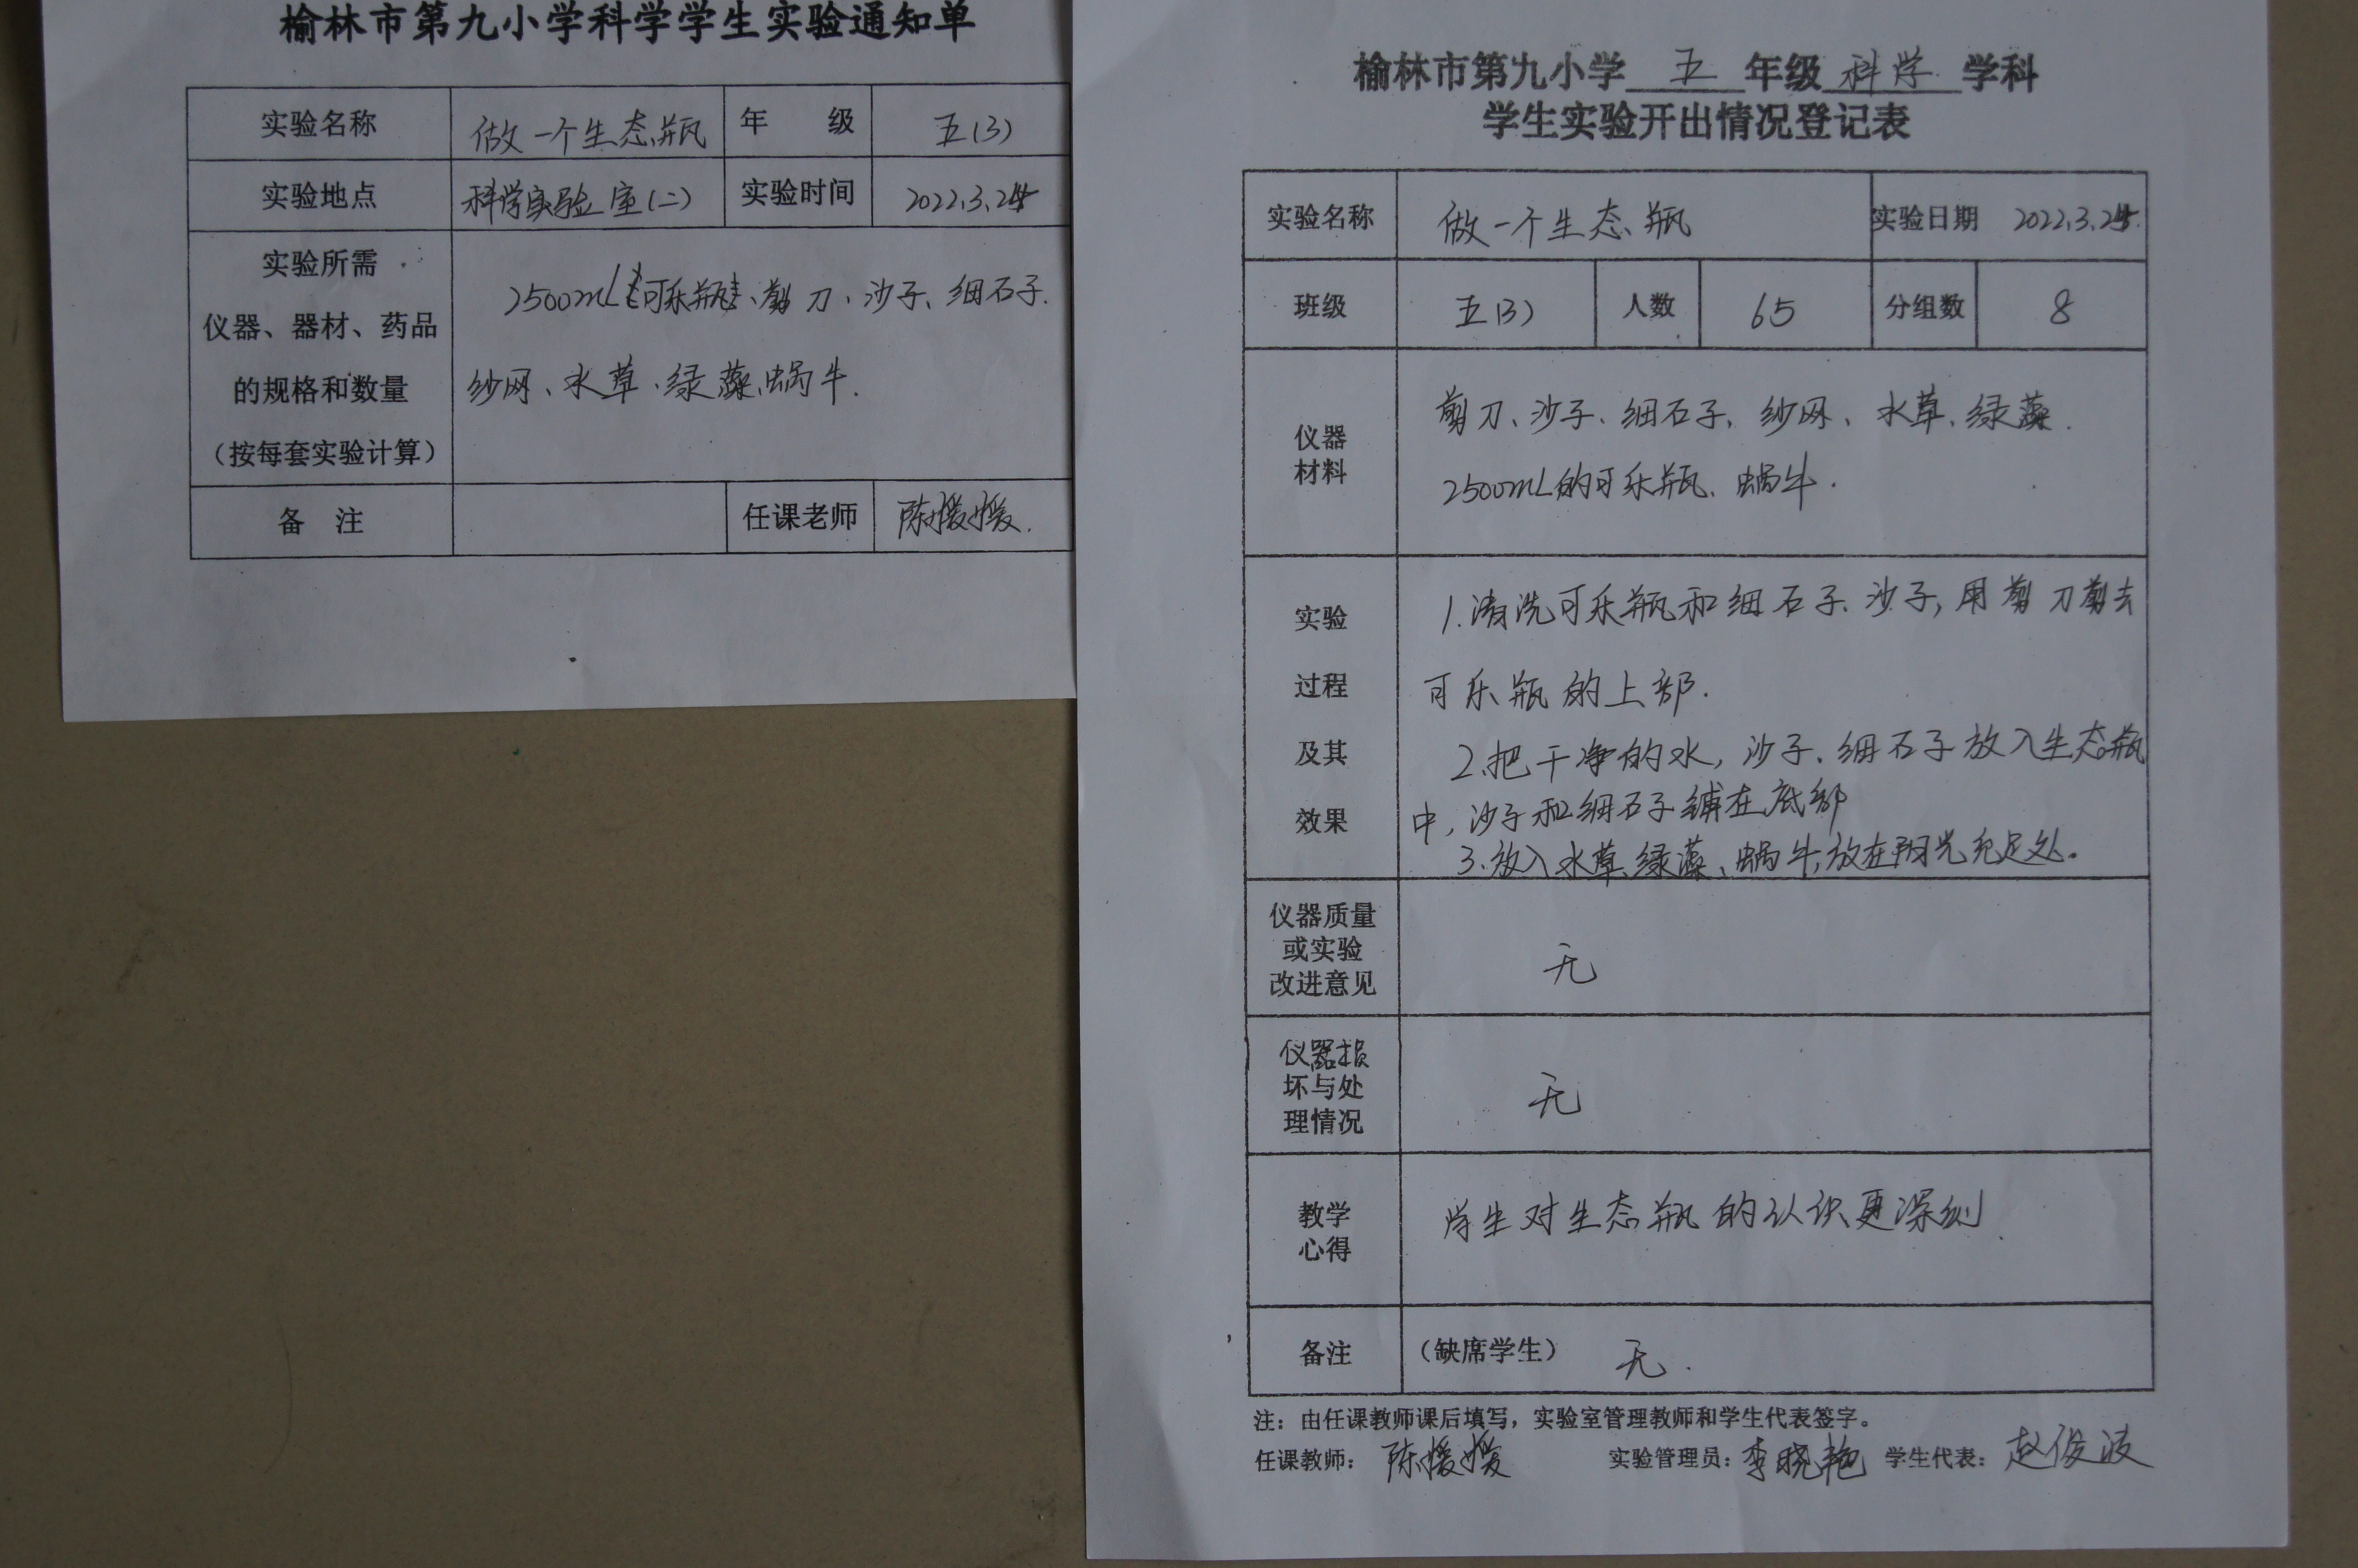 榆林市第九小学科学学生实验通知单
实验名称 做一个生态瓶 年 级 五(3)
实验地点 科学实验室(二) 实验时间 2022.3.24
实验所需
仪器、器材、药品
的规格和数量
(按每套实验计算)
2500mL 可乐瓶、剪刀、沙子、细石子.
纱网、水草、绿藻、蜗牛.
备 注 任课老师 陈媛媛.
榆林市第九小学 五 年级 科学 学科
学生实验开出情况登记表
实验名称 做一个生态瓶 实验日期 2022.3.24.
班级 五(3) 人数 65 分组数 8
仪器
材料
剪刀、沙子、细石子、纱网、水草、绿藻.
2500mL的可乐瓶、蜗牛.
实验
过程
及其
效果
1.清洗可乐瓶和细石子、沙子,用剪刀剪去
可乐瓶的上部.
2.把干净的水,沙子、细石子放入生态瓶
中,沙子和细石子铺在底部
3.放入水草、绿藻、蜗牛,放在阳光充足处。
仪器质量
或实验
改进意见
无
仪器损
坏与处
理情况
无
教学
心得
学生对生态瓶的认识更深刻.
备注 (缺席学生) 无.
注:由任课教师课后填写,实验室管理教师和学生代表签字。
任课教师:陈媛媛 实验管理员:李晓艳 学生代表:赵俊波